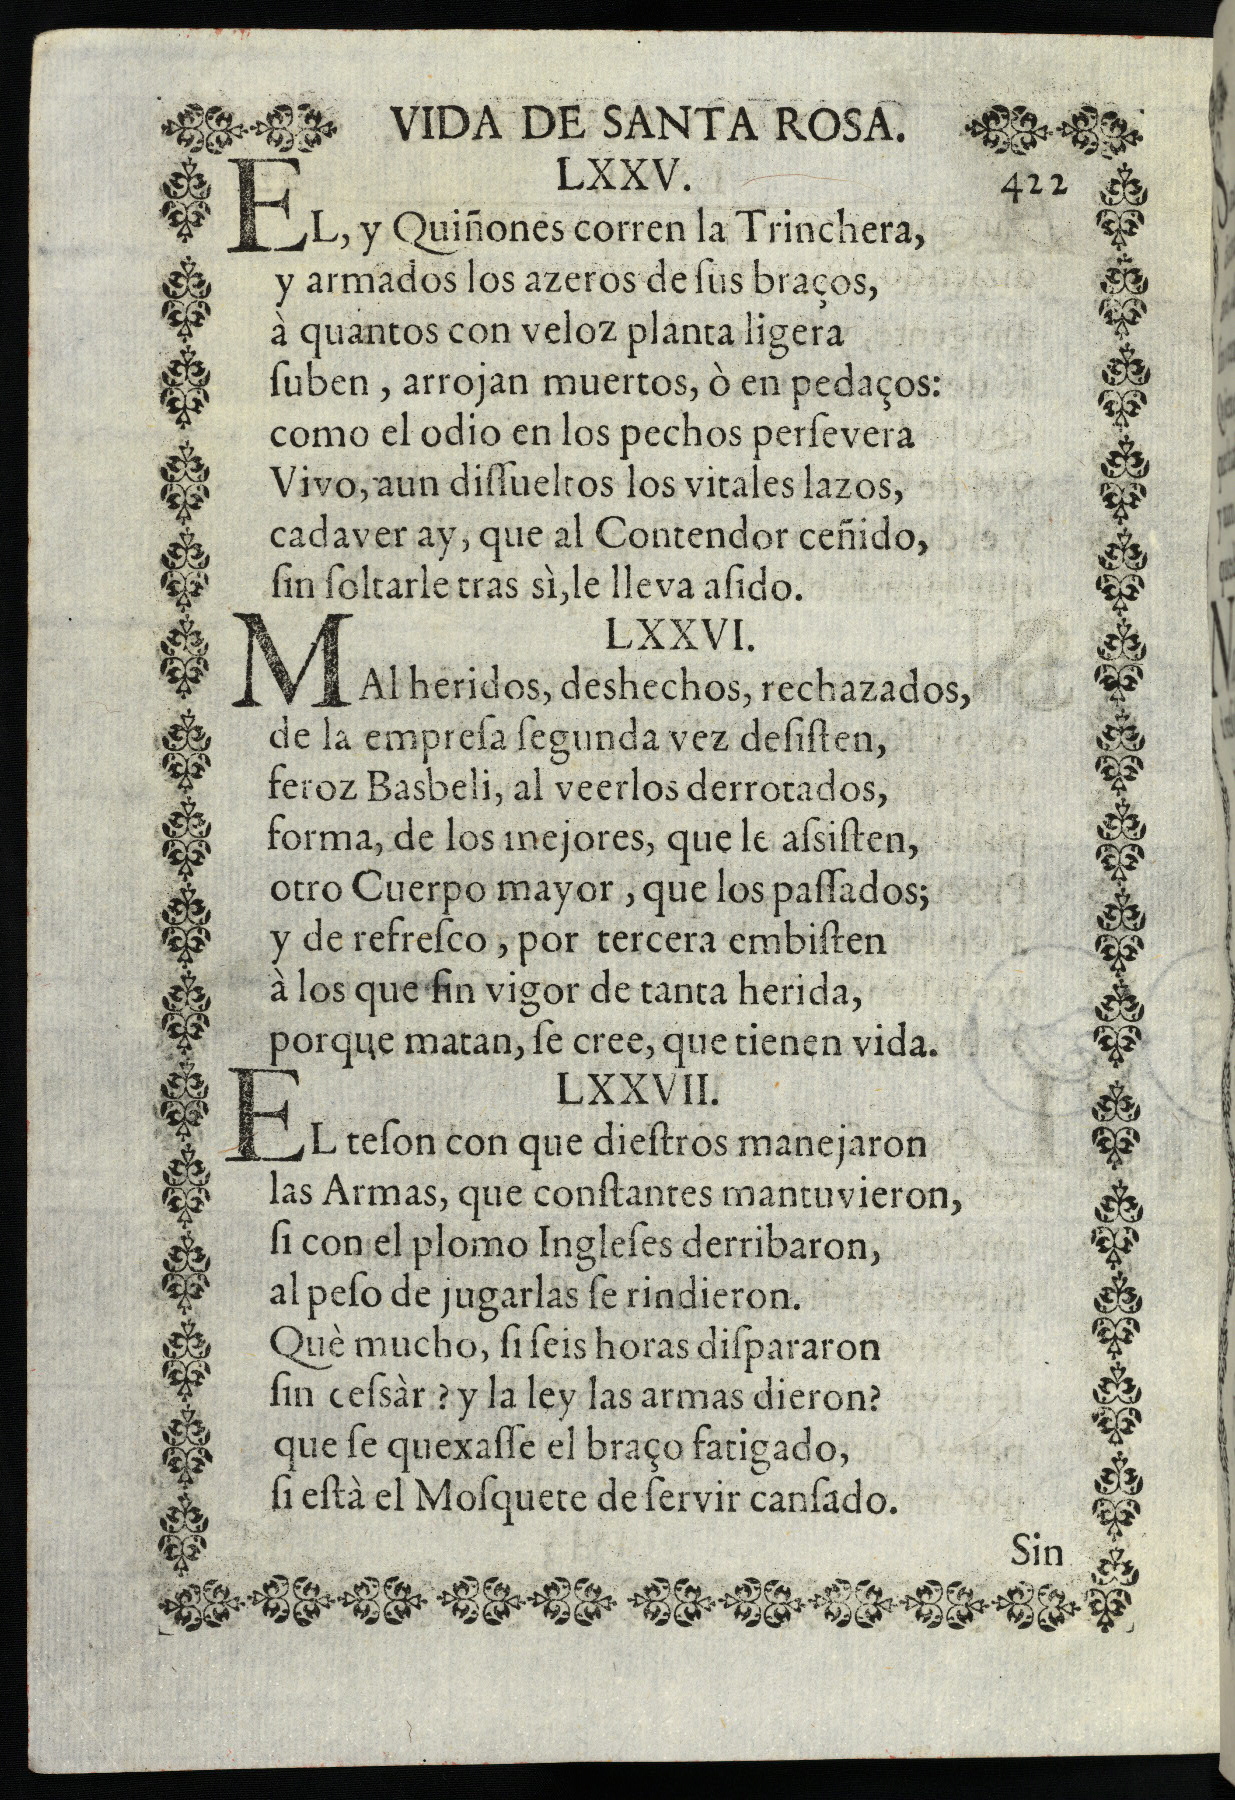 VIDA DE SANTA ROSA.
LXXV.
422
EL, y Quiñones corren la Trinchera,
y armados los azeros de ſus braços,
à quantos con veloz planta ligera
ſuben, arrojan muertos, ò en pedaços:
como el odio en los pechos perſevera
Vivo, aun diſſueltos los vitales lazos,
cadaver ay, que al Contendor ceñido,
ſin ſoltarle tras sì, le lleva aſido.
LXXVI.
MAl heridos, deshechos, rechazados,
de la empreſa ſegunda vez deſiſten,
feroz Basbeli, al veerlos derrotados,
forma, de los mejores, que le aſsiſten,
otro Cuerpo mayor, que los paſſados;
y de refreſco, por tercera embiſten
à los que ſin vigor de tanta herida,
porque matan, ſe cree, que tienen vida.
LXXVII.
EL teſon con que dieſtros manejaron
las Armas, que conſtantes mantuvieron,
ſi con el plomo Ingleſes derribaron,
al peſo de jugarlas ſe rindieron.
Què mucho, ſi ſeis horas diſpararon
ſin ceſsàr? y la ley las armas dieron?
que ſe quexaſſe el braço fatigado,
ſi eſtà el Moſquete de ſervir canſado.
Sin